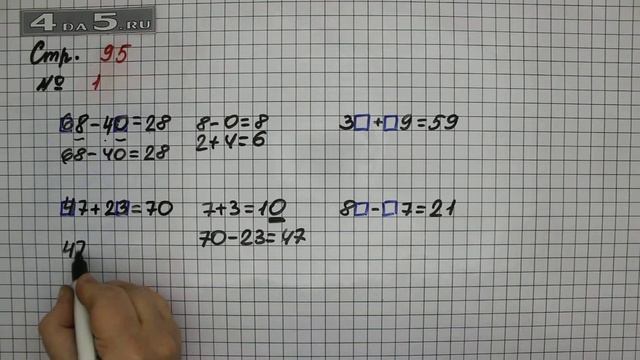 4DA5.RU
Стр. 95
№ 1
68-40=28 8-0=8 3□+□9=59
68-40=28 2+4=6
47+23=70 7+3=10 8□-□7=21
47 70-23=47